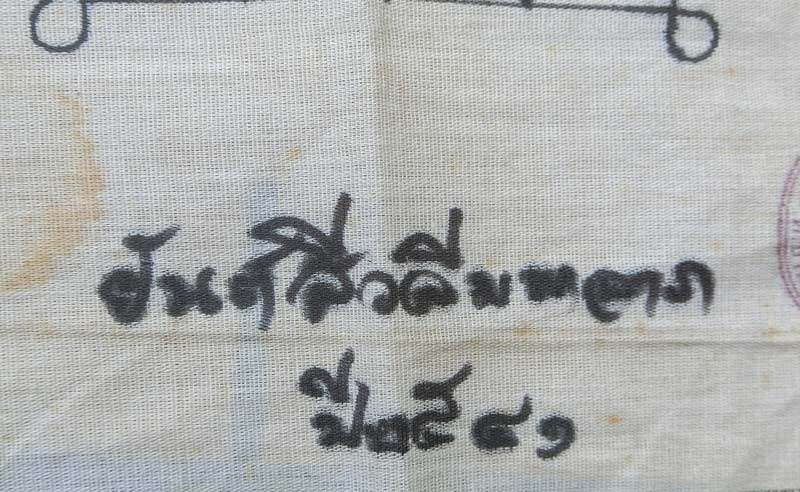 ยันต์สีวลีมหาลาภ
ปี๒๕๔๑